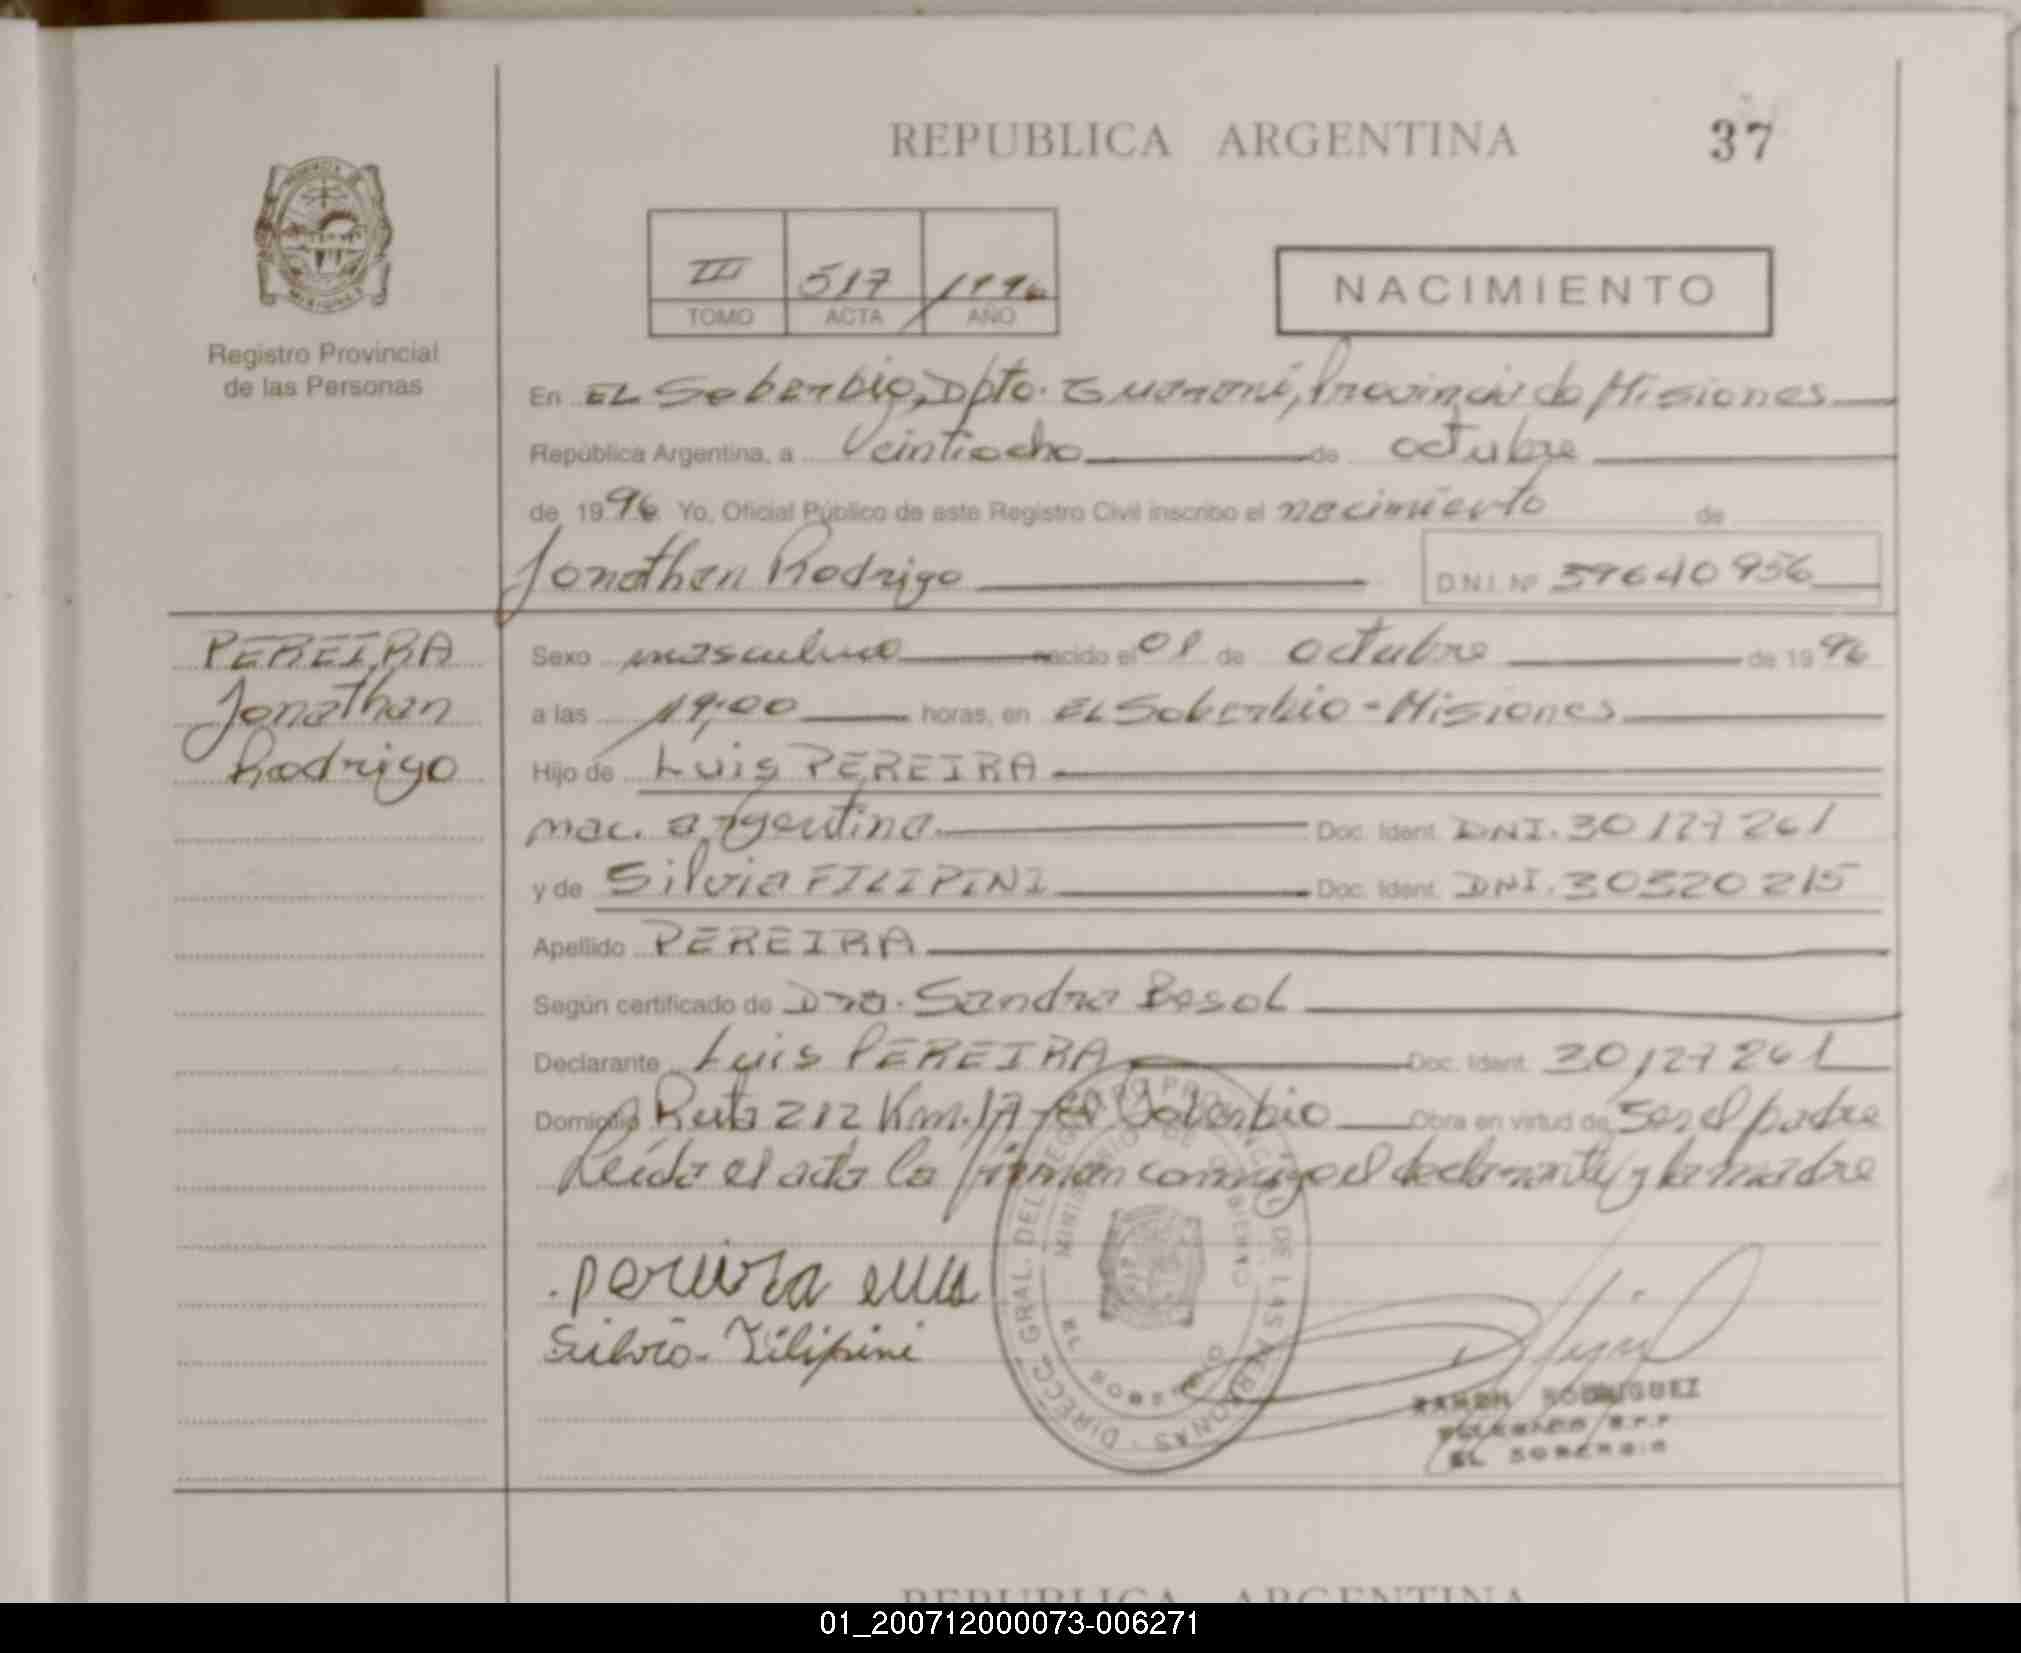 REPUBLICA ARGENTINA
37
III 517 1996
TOMO ACTA AÑO
NACIMIENTO
Registro Provincial
de las Personas
En EL Soberbio, Dpto. Guaraní, Provincia de Misiones
República Argentina, a Veintiocho de octubre
de 1996 Yo, Oficial Público de este Registro Civil inscribo el nacimiento de
Jonathan Rodrigo D.N.I. Nº 39640956
PEREIRA
Jonathan
Rodrigo
Sexo masculino nacido el 01 de octubre de 1996
a las 19:00 horas, en EL Soberbio - Misiones
Hijo de Luis PEREIRA
nac. argentina Doc. Ident. DNI. 30127261
y de Silvia FILIPINI Doc. Ident. DNI. 30320215
Apellido PEREIRA
Según certificado de Dra. Sandra Besol
Declarante Luis PEREIRA Doc. Ident. 30127261
Domicilio Ruta 212 Km. 17 - el Soberbio Obra en virtud de Ser el padre
Leída el acta la firman conmigo el declarante y la madre
pereira
Silvia Filipini
DIRECC. GRAL. DEL REGISTRO PROVINCIAL DE LAS PERSONAS
MINISTERIO DE GOBIERNO
EL SOBERBIO
RAMON RODRIGUEZ
DELEGADO R.P.P
EL SOBERBIO
REPUBLICA ARGENTINA
01_200712000073-006271